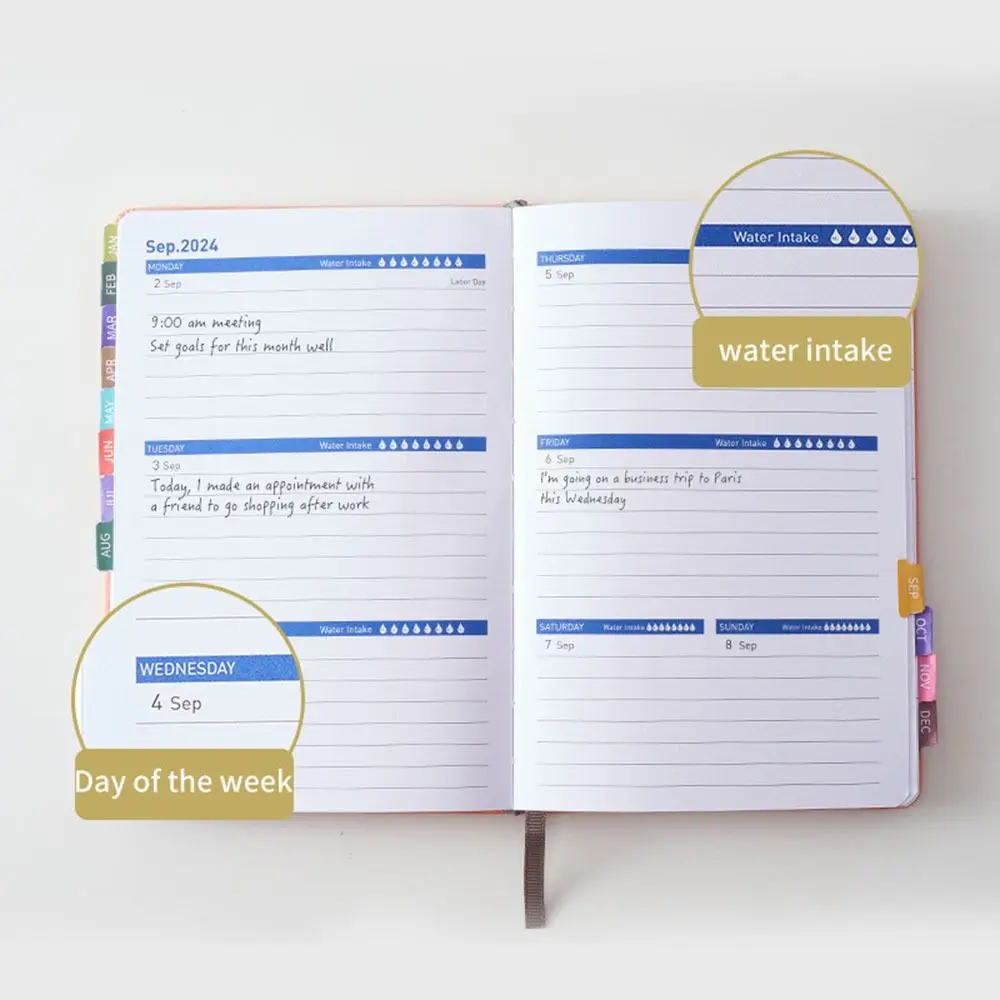 Sep.2024
MONDAY Water Intake
2 Sep Labor Day
9:00 am meeting
Set goals for this month well
TUESDAY Water Intake
3 Sep
Today, I made an appointment with
a friend to go shopping after work
Water Intake
WEDNESDAY
4 Sep
Day of the week
THURSDAY
5 Sep
Water Intake
water intake
FRIDAY Water Intake
6 Sep
I'm going on a business trip to Paris
this Wednesday
SATURDAY Water Intake
7 Sep
SUNDAY Water Intake
8 Sep
JAN
FEB
MAR
APR
MAY
JUN
JUL
AUG
SEP
OCT
NOV
DEC